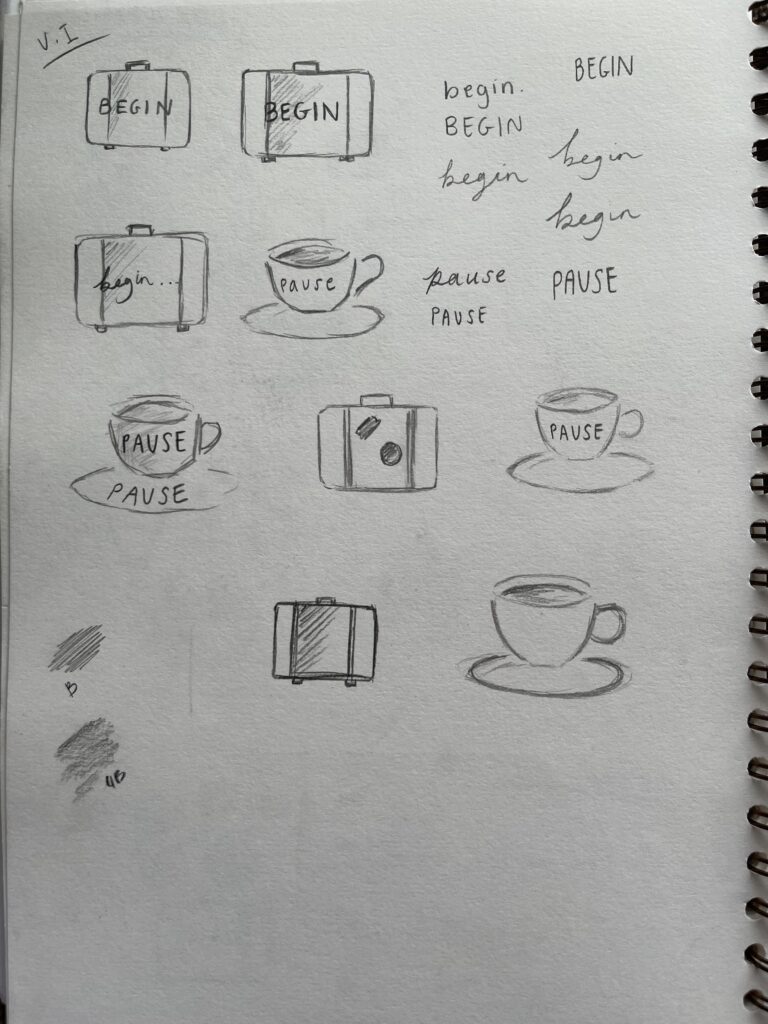 V.I
BEGIN
BEGIN
begin.
BEGIN
BEGIN
begin
begin
begin
begin...
pause
pause
PAUSE
PAUSE
PAUSE
PAUSE
PAUSE
B
4B